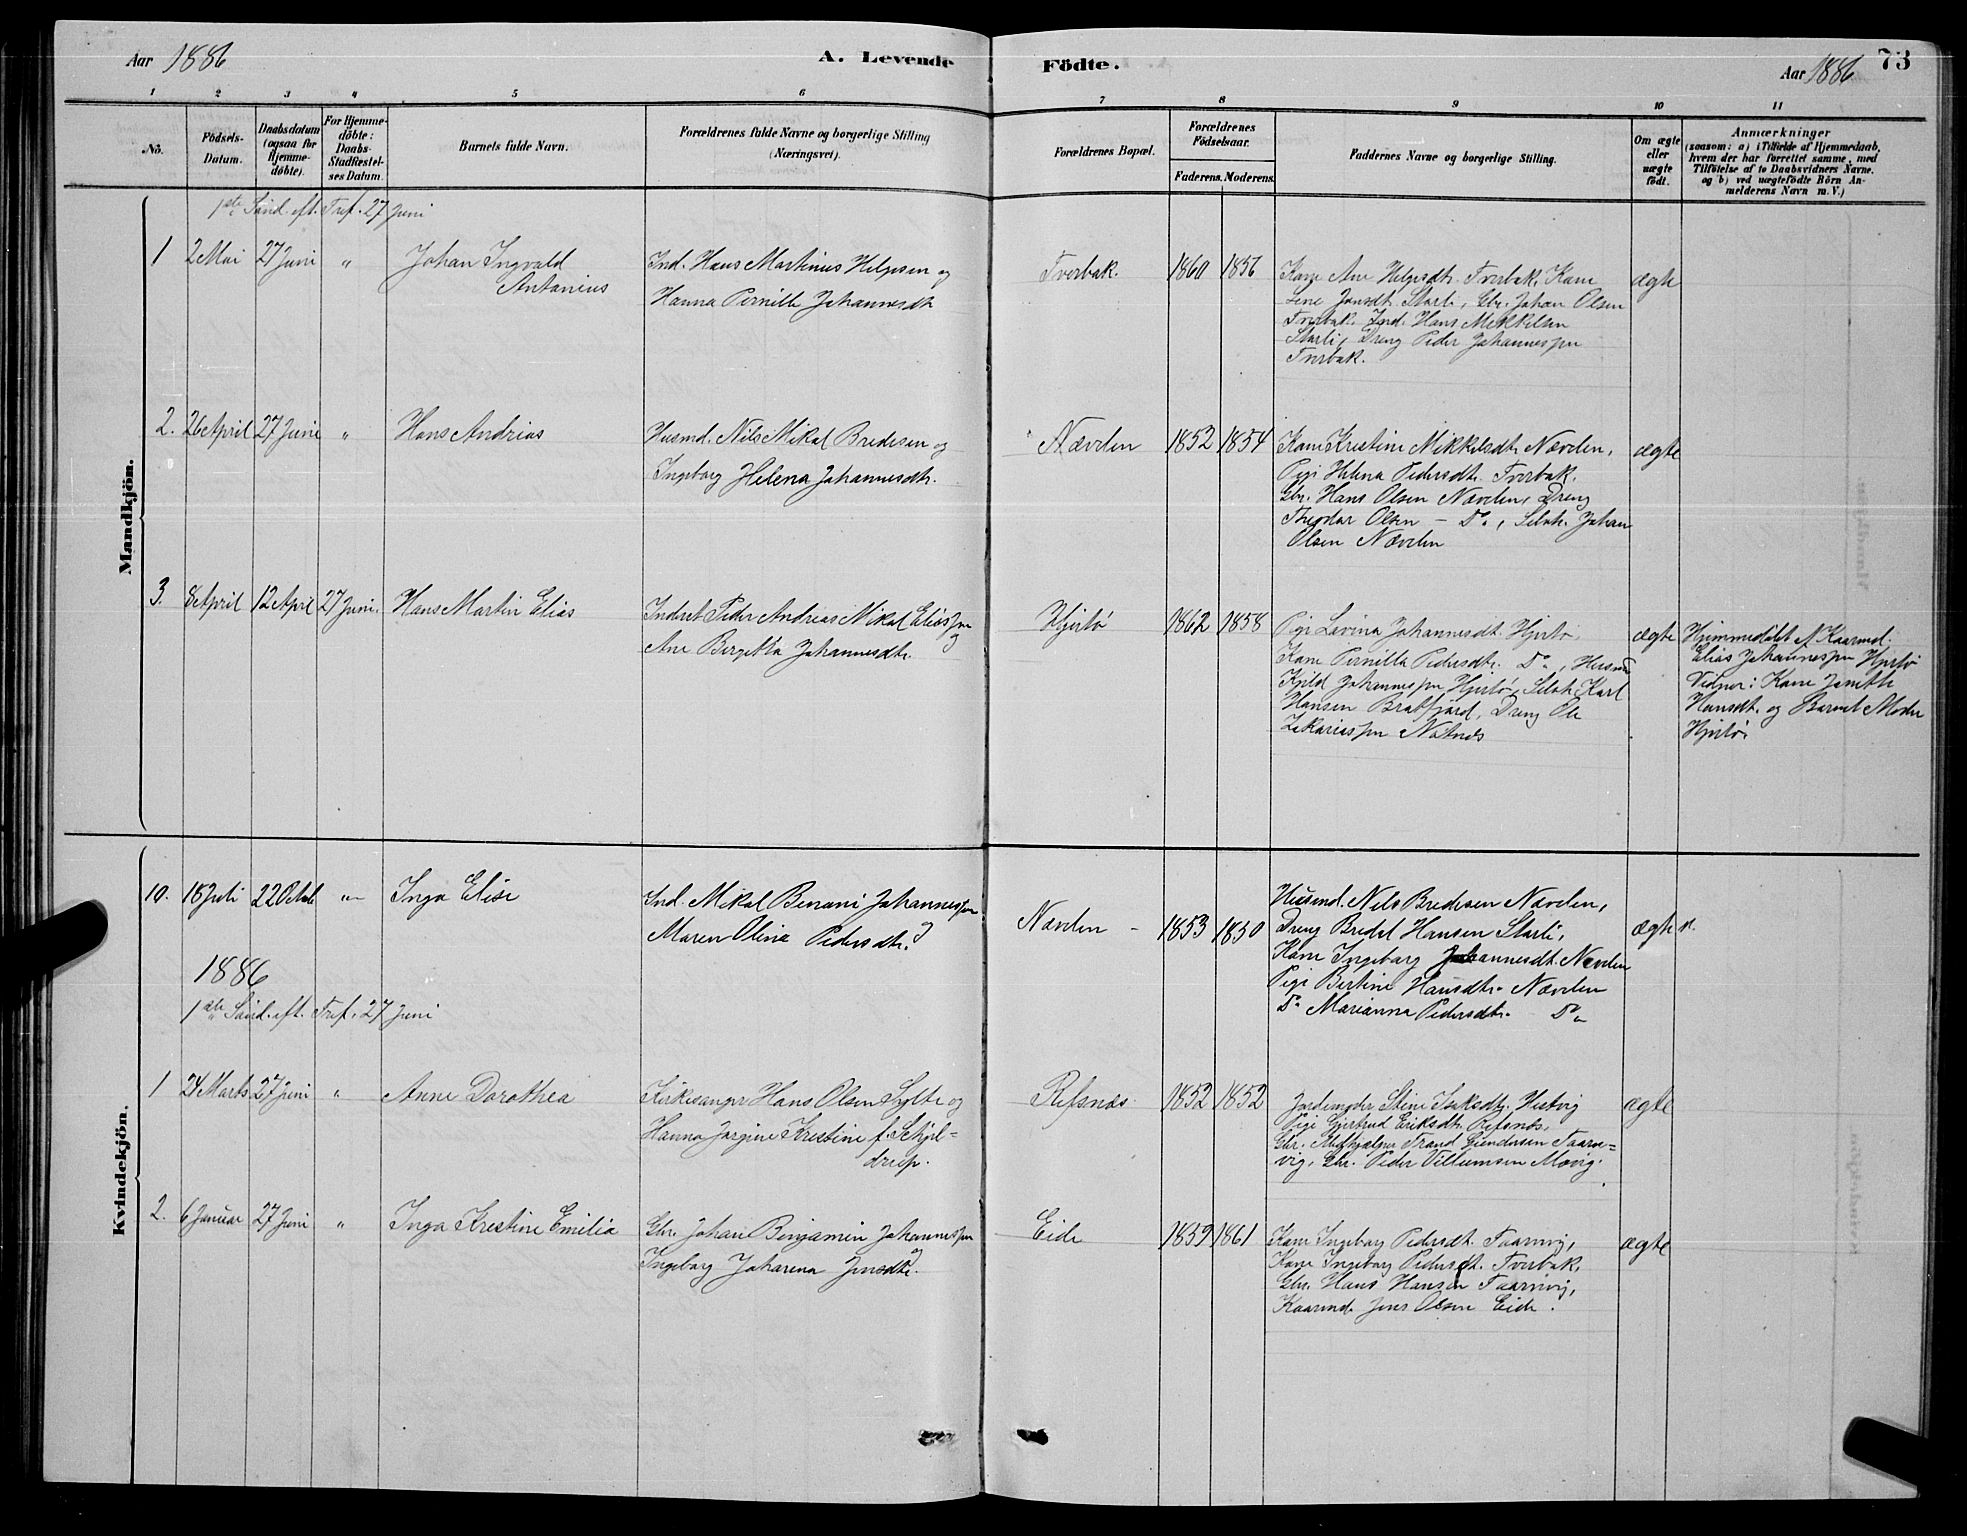 Aar 1886
A. Levende
Födte.
Aar 1886
73
1 2 3 4 5 6 7 8 9 10 11
No.
Födsels-
Datum.
Daabsdatum
(ogsaa for
Hjemme-
döbte).
For Hjemme-
döbte:
Daabs-
Stadfæstel-
ses Datum.
Barnets fulde Navn.
Forældrenes fulde Navne og borgerlige Stilling
(Næringsvei).
Forældrenes Bopæl.
Forældrenes
Födselsaar.
Faderens. Moderens.
Faddernes Navne og borgerlige Stilling.
Om ægte
eller
uægte
födt.
Anmærkninger
(saasom: a) i Tilfælde af Hjemmedaab,
hvem der har forrettet samme, med
Tilföielse af to Daabsvidners Navne.
og b) ved uægtefödte Börn An-
melderens Navn m. V.)
Mandkjön.
1ste Sönd. eft. Tref. 27 Juni
1 2 Mai 27 Juni "
Johan Ingvald
Antonius
Ind. Hans Martinus Helgesen og
Hanna Pernille Johannesdtr
Tverbak.
1860 1856
Kone Ane Helgesdtr. Tverbak, Kone
Lene Jonsdtr. Starli, Gbr. Johan Olsen
Tverbak, Ind. Hans Mikkelsen
Starli, Dreng Peder Johannessen
Tverbak.
ægte
2. 26 April 27 Juni "
Hans Andrias
Husmd. Nils Mikal Bredesen og
Ingeborg Helena Johannesdtr.
Nævden
1852 1854
Kone Kristine Mikkelsdtr. Nævden,
Pige Helena Pedersdtr. Tverbak.
Gbr. Hans Olsen Nævden, Dreng
Theodor Olsen – Do, Selvh. Johan
Olsen Nævden
ægte
3. 8 April 12 April 27 Juni.
Hans Martin Elias
Inderst Peder Andreas Mikal Eliassen
og
Ane Bergitta Johannesdtr.
Hjertö
1862 1858
Pige Lovina Johannesdtr. Hjertö
Kone Pernilla Pedersdtr. Do, Husmd
Kjeld Johannessen Hjertö, Selvh. Karl
Hansen Bratfjord, Dreng Ole
Zakariassen
ægte
Hjemmedöbt af Kaarmd.
Elias Johannessen Hjertö
Vidner: Kone Janetta
Hansdt. og Barnets Moder
Hjertö.
Kvindekjön.
10. 18 Juli 22 Oktob "
Inga Elise
Ind. Mikal Benoni Johannessen
og
Maren Olina Pedersdtr.
Nævden –
1853 1850
Husmd. Nils Bredesen Nævden,
Dreng Bredal Hansen Starli,
Kone Ingeborg Johannesdt. Nævden
Pige Bertine Hansdtr. Nævden
Do Marianna Pedersdtr. Do
ægte
1886
1ste Sönd. eft. Tref. 27 Juni
1 24 Marts 27 Juni "
Anne Dorothea
Kirkesanger Hans Olsen Sylte og
Hanna Jorgine Kristine f. Schjel-
derup.
Refsnæs
1852 1852
Jordemoder Stine Hestvig
Pige Gjertrud Eriksdtr. Refsnæs,
Gbr. Medhjælper Trond Taarn-
vig, Gbr. Peder Villumsen Movig.
ægte
2. 6 Januar 27 Juni "
Inga Krestine Emilia
Gbr. Johan Benjamin Johannessen
og
Ingeborg Joharena Jensdtr.
Eide
1859 1861
Kone Ingeborg Pedersdt. Taarnvig,
Kone Ingeborg Pedersdt. Tverbak,
Gbr. Hans Hansen Taarnvig,
Kaarmd. Jens Olsen Eide.
ægte